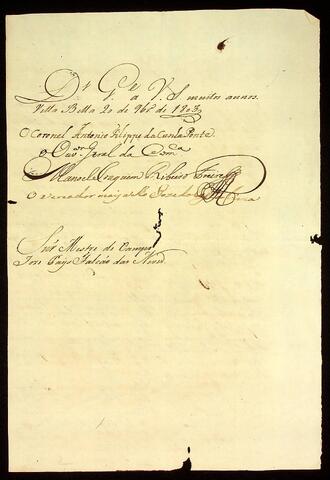 Ds Gde a V. S. muitos annos.
Villa Bella 20 de 9bro de 1803
O Coronel Antonio Filippe da Cunha Ponte
o Ouvor Geral da Comca
Manoel Joaquim Ribeiro Freire
O vereador mais velho José da
Snr Mestre de Campo
José Paes Falcão das Neves